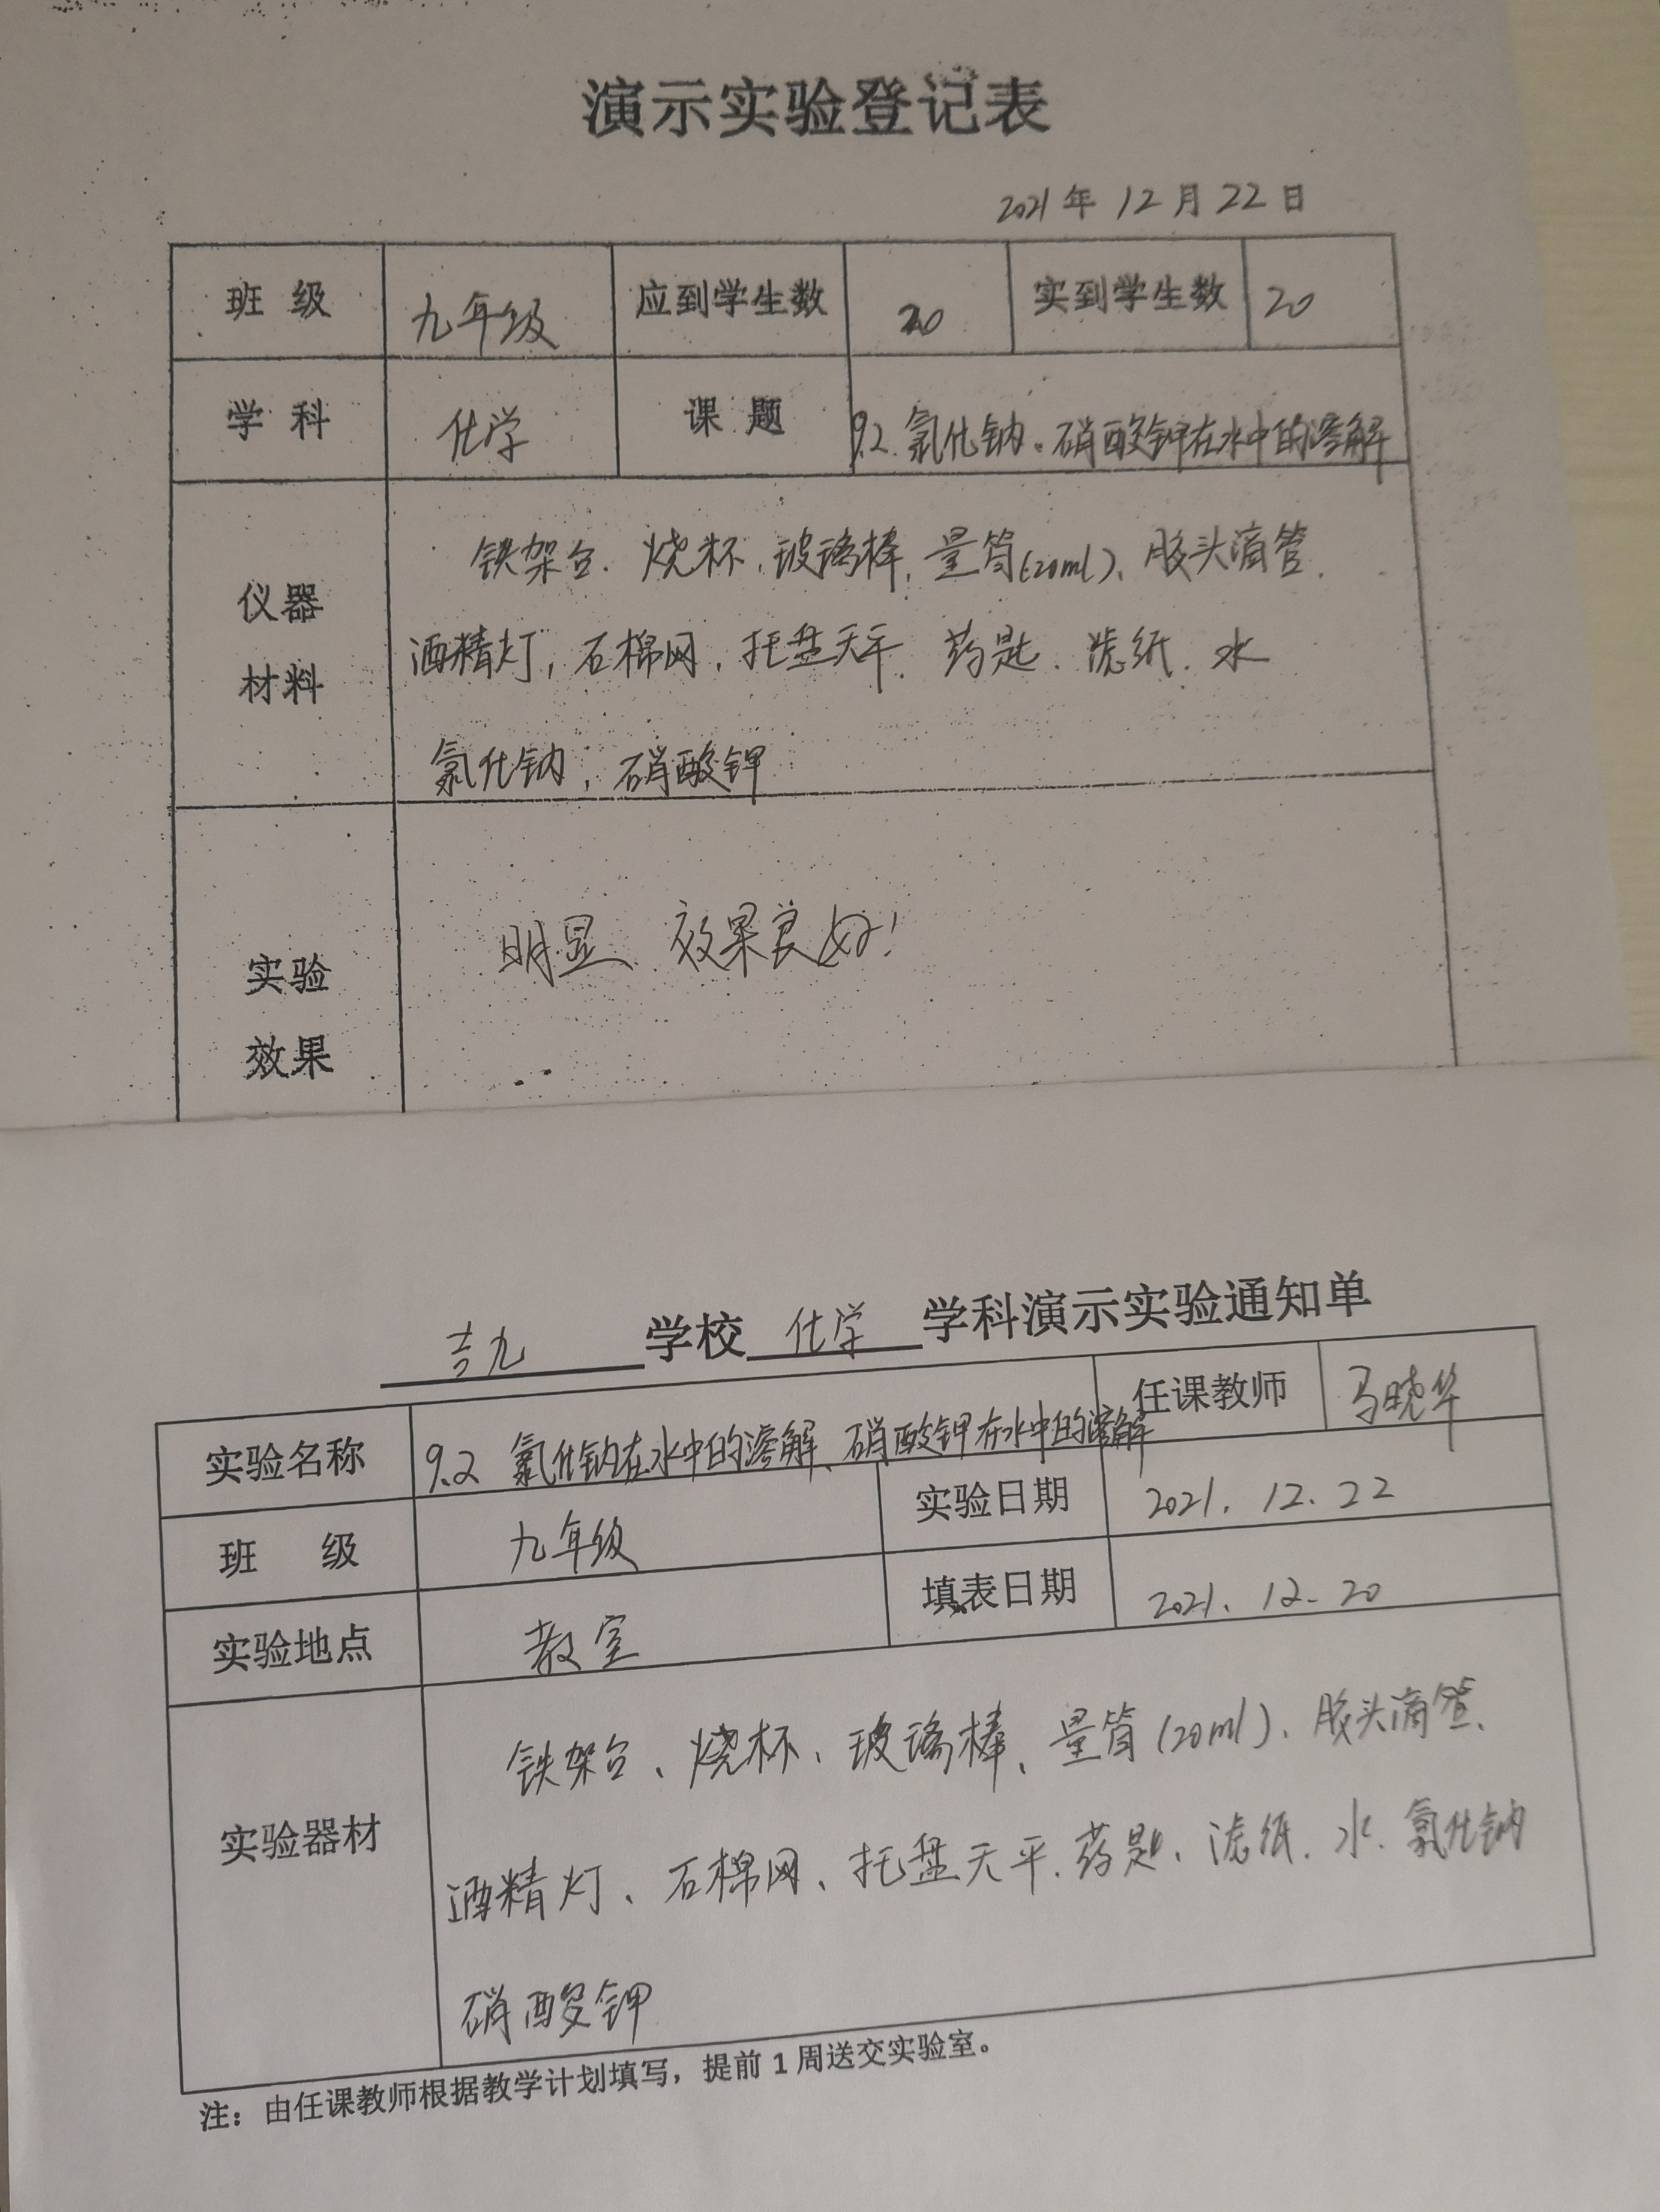 演示实验登记表
2021年12月22日
班级 九年级 应到学生数 20 实到学生数 20
学科 化学 课题 9.2.氯化钠、硝酸钾在水中的溶解
仪器材料
铁架台、烧杯、玻璃棒、量筒(20ml)、胶头滴管、
酒精灯、石棉网、托盘天平、药匙、滤纸、水
氯化钠、硝酸钾
实验效果
明显、效果良好!
吉九 学校 化学 学科演示实验通知单
实验名称 9.2 氯化钠在水中的溶解、硝酸钾在水中的溶解 任课教师 马晓华
班级 九年级 实验日期 2021.12.22
实验地点 教室 填表日期 2021.12.20
实验器材
铁架台、烧杯、玻璃棒、量筒(20ml)、胶头滴管、
酒精灯、石棉网、托盘天平、药匙、滤纸、水、氯化钠
硝酸钾
注：由任课教师根据教学计划填写，提前1周送交实验室。